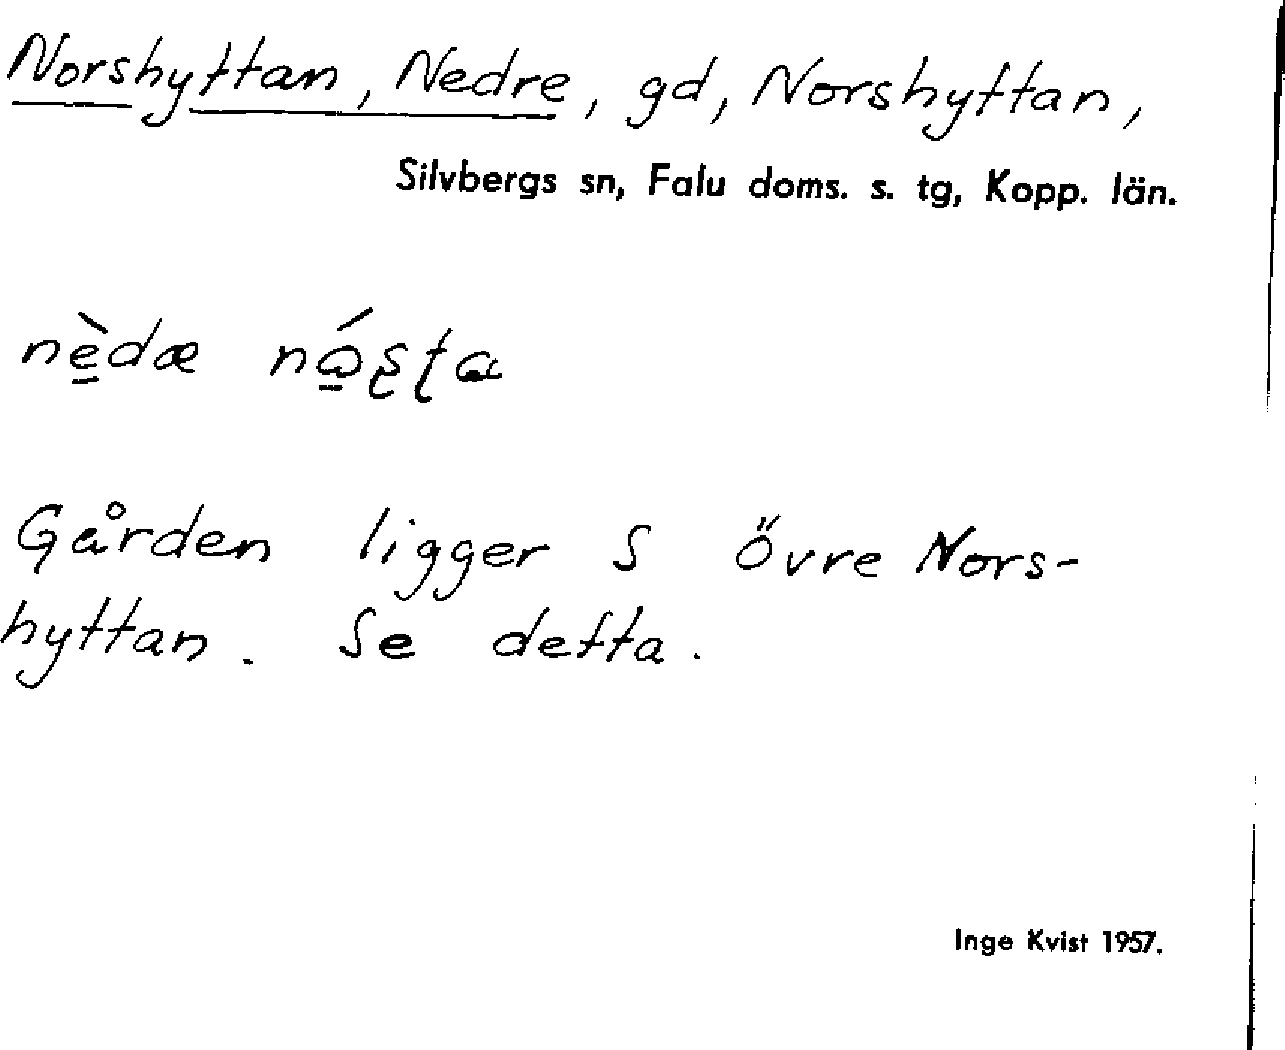 Norshyttan, Nedre, gd, Norshyttan,
Silvbergs sn, Falu doms. s. tg, Kopp. län.
nèdæ
Gården ligger S Övre Nors-
hyttan. Se detta.
Inge Kvist 1957.